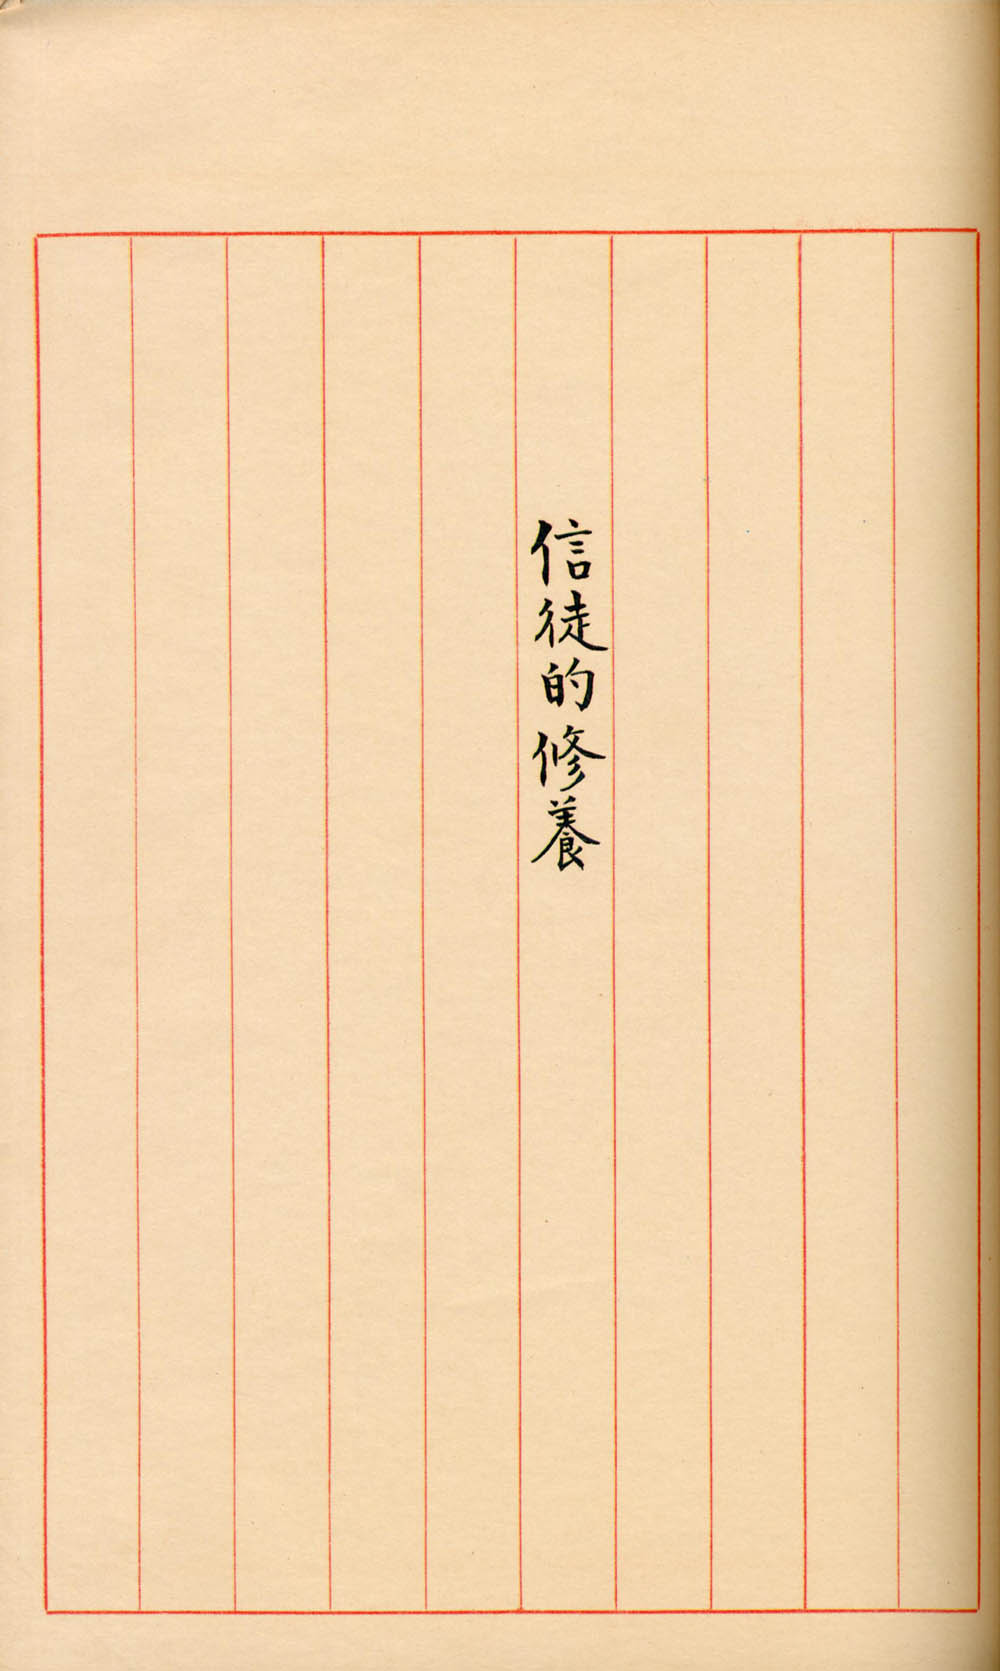 信徒的修養